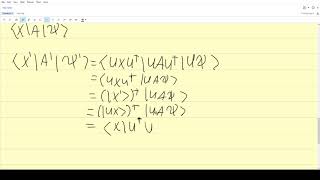 ⟨X|A|Ψ⟩
⟨X'|A'|Ψ'⟩ = ⟨UXU†|UAU†|UΨ⟩
= ⟨UXU†|UAΨ⟩
= (|X'⟩)†|UAΨ⟩
= (|UX⟩)†|UAΨ⟩
= ⟨X|U†U